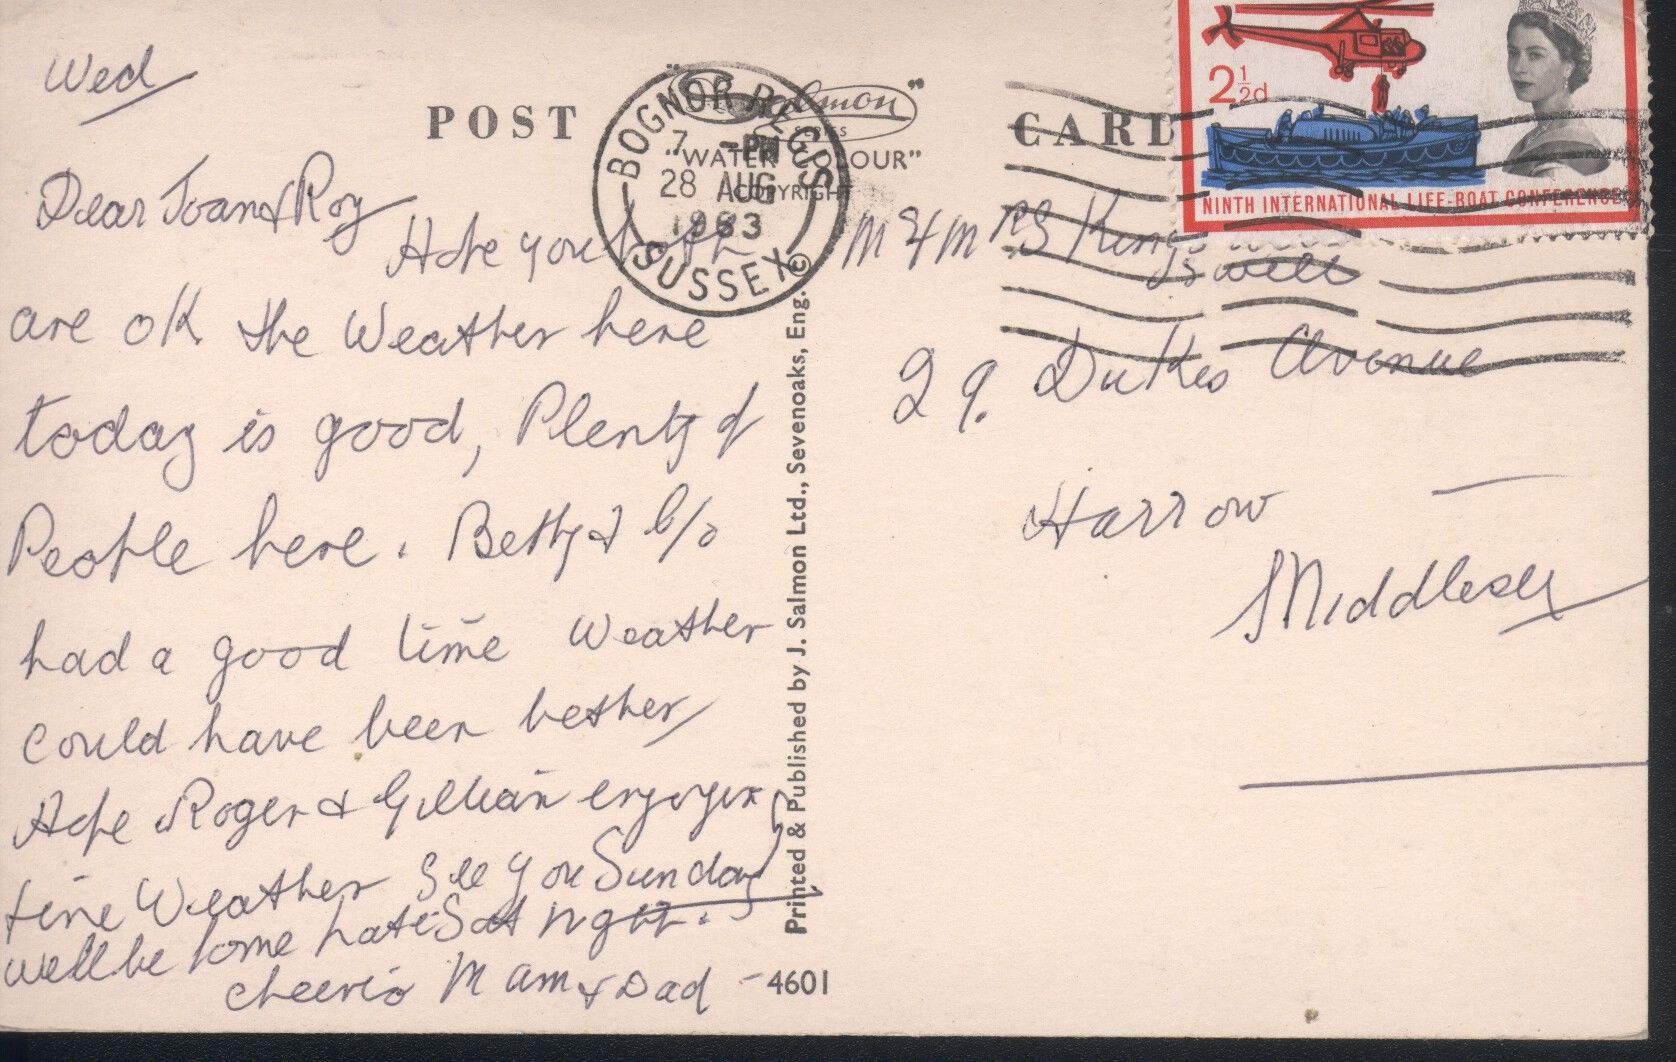 Wed
POST CARD
"Salmon"
SERIES
"WATER COLOUR"
COPYRIGHT
BOGNOR REGIS
7 - PM
28 AUG
1963
SUSSEX
2½d
NINTH INTERNATIONAL LIFE-BOAT CONFERENCE
Dear Joan & Roy
Hope you both
are OK the Weather here
today is good, Plenty of
People here. Betty &
had a good time Weather
could have been better
Hope Roger & Gillian enjoyin
fine Weather See you Sunday
well be home late Sat night.
cheerio Mam & Dad
M & MRS Kings
well
29. Dukes Avenue
Harrow
Middlesex
Printed & Published by J. Salmon Ltd., Sevenoaks, Eng. ©
4601